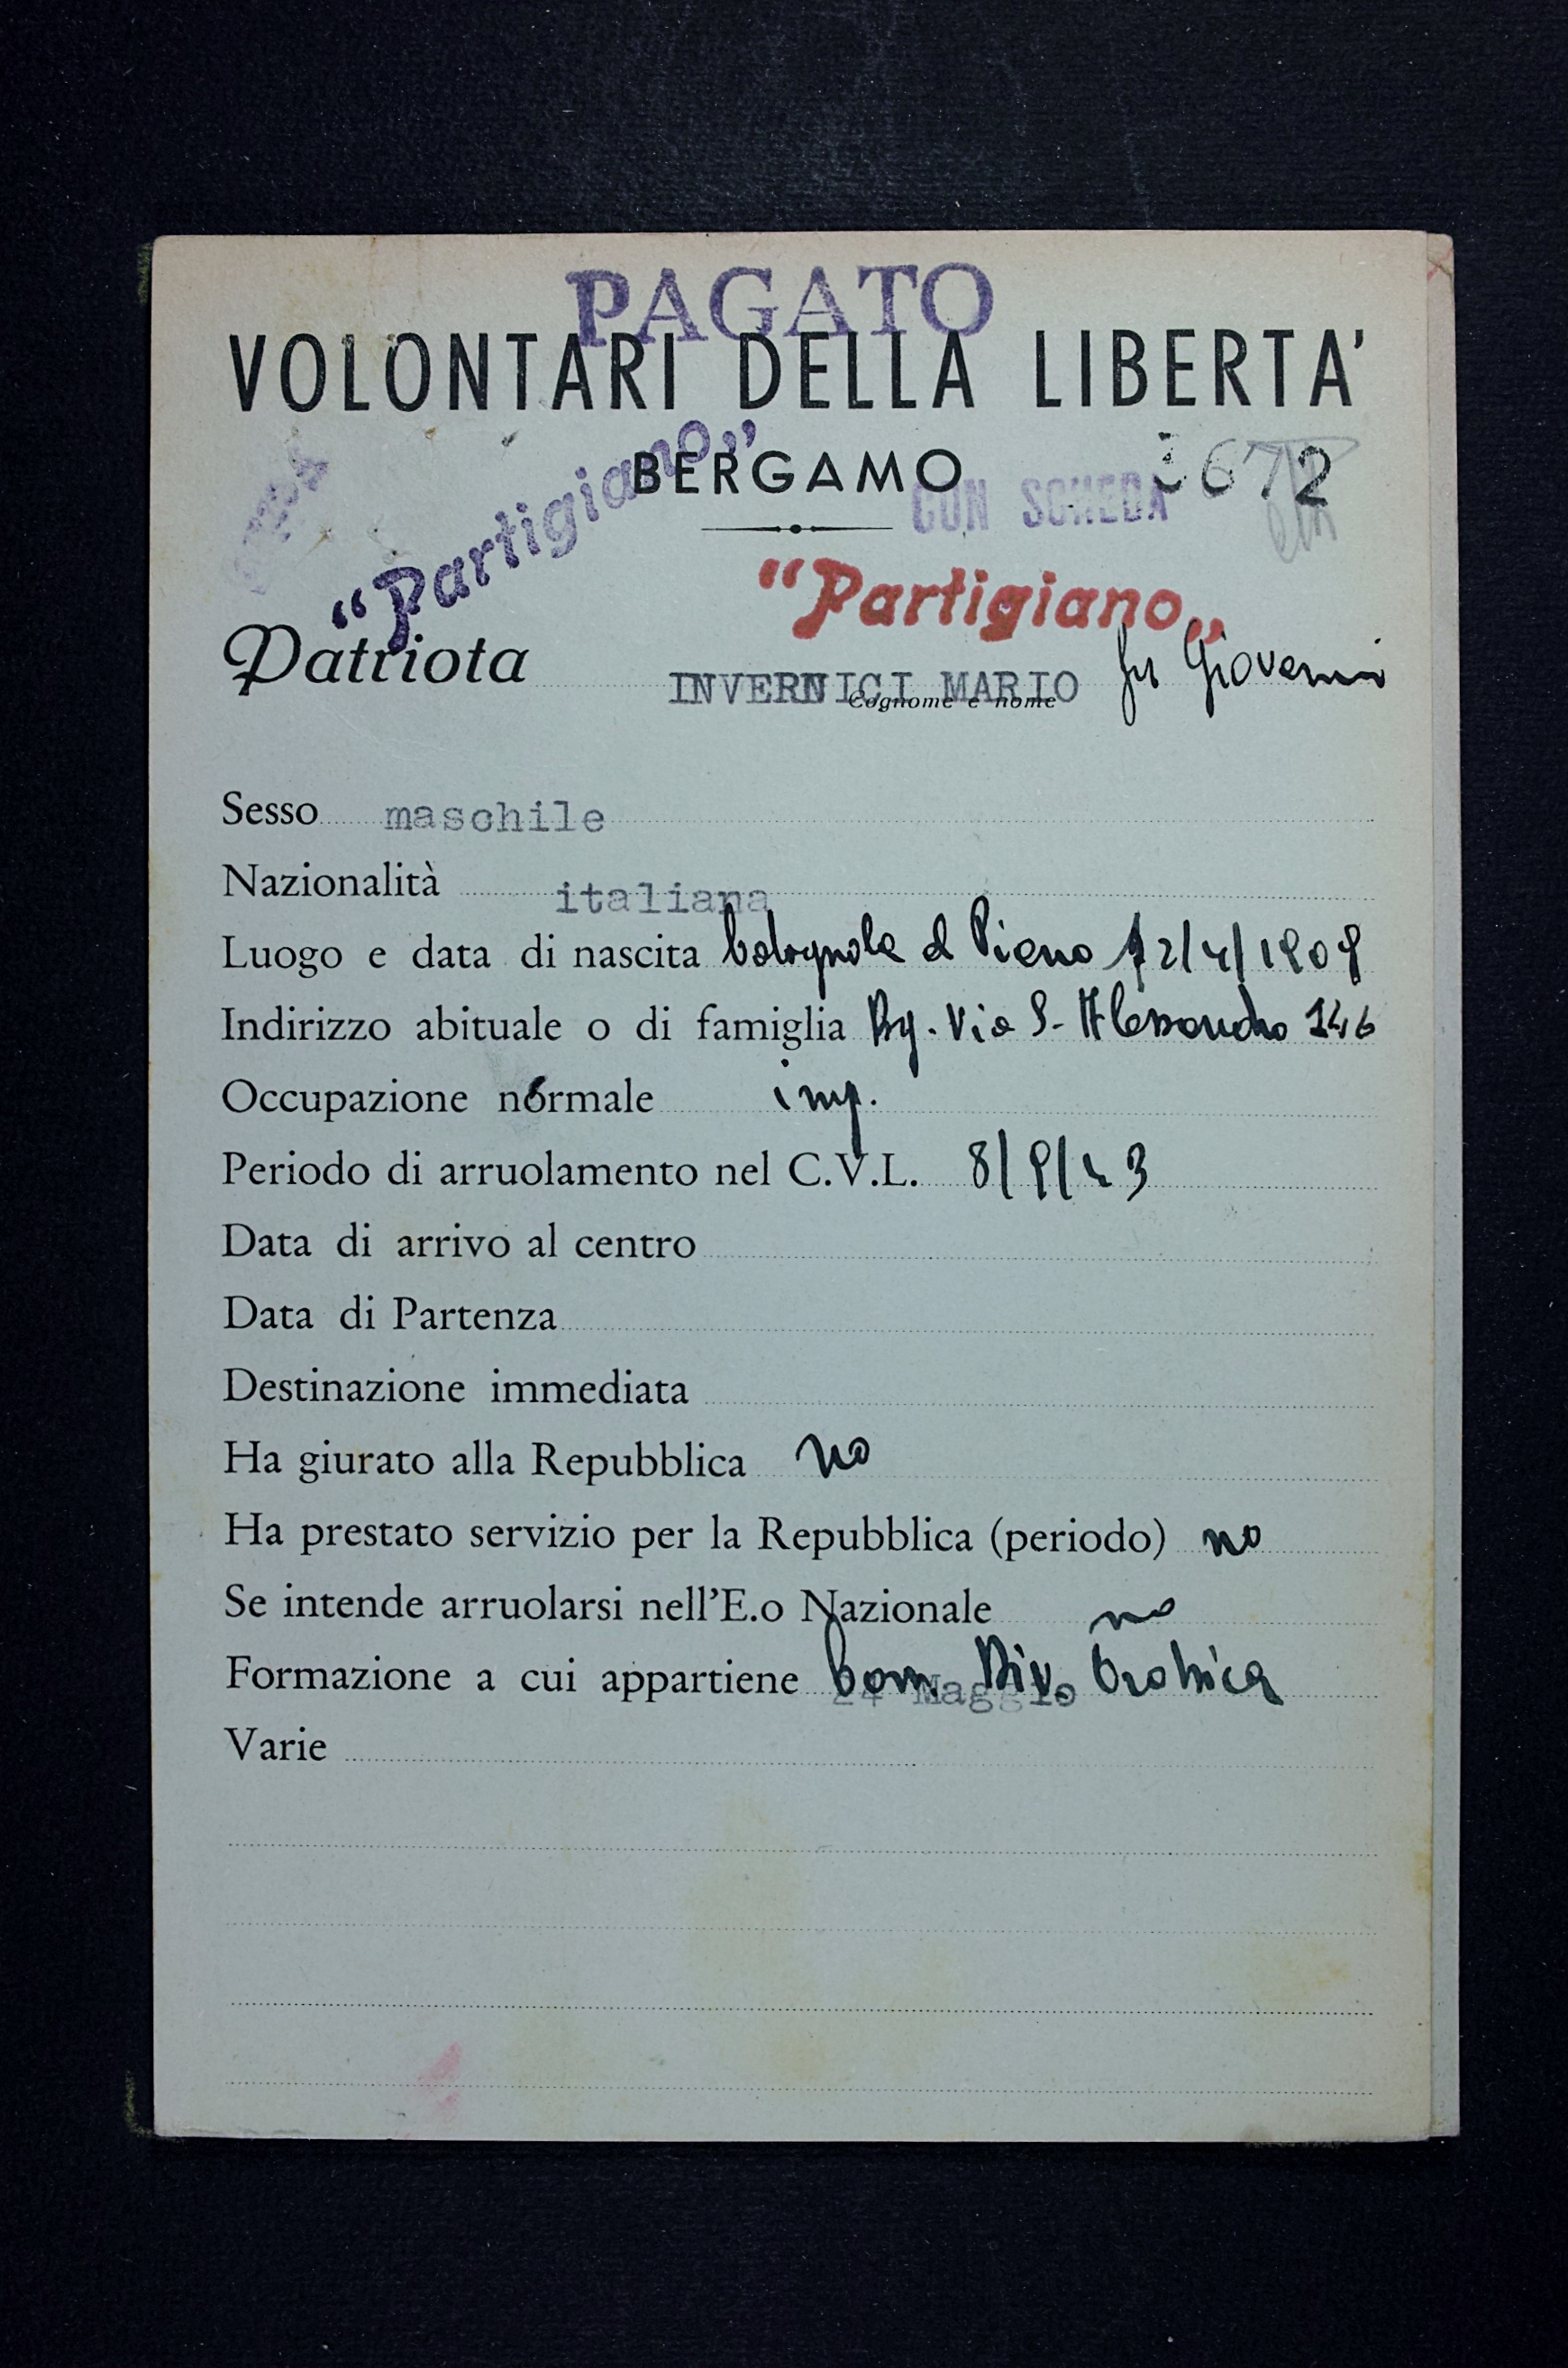 PAGATO
VOLONTARI DELLA LIBERTA'
BERGAMO
3672
CON SCHEDA
"Partigiano"
"Partigiano"
Patriota INVERNICI MARIO fu Giovanni
Cognome e nome
Sesso maschile
Nazionalità italiana
Luogo e data di nascita Bolognola al Piano 12/4/1909
Indirizzo abituale o di famiglia Bg. Via S. Alessandro 146
Occupazione normale imp.
Periodo di arruolamento nel C.V.L. 8/9/43
Data di arrivo al centro
Data di Partenza
Destinazione immediata
Ha giurato alla Repubblica no
Ha prestato servizio per la Repubblica (periodo) no
Se intende arruolarsi nell'E.o Nazionale no
Formazione a cui appartiene 24 Maggio Com Div. Orobica
Varie